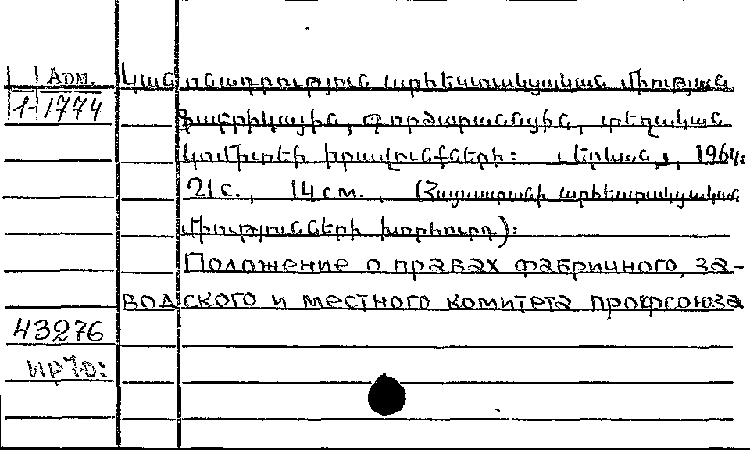 Арм.
1-1774
Կանոնադրություն արհեստակցական միության
ֆաբրիկային, գործարանային, տեղական
կոմիտեի իրավունքների: Երևան, 1964:
21 с., 14 см. (Հայաստանի արհեստակցական
միությունների խորհուրդ):
Положение о правах фабричного, за-
водского и местного комитета профсоюза
43276